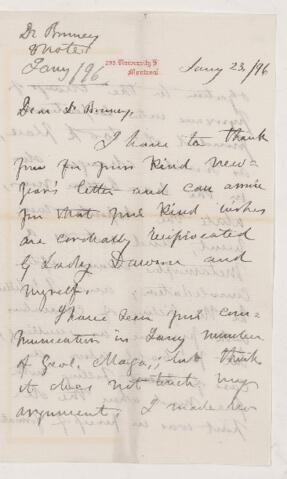 Dr Bonney
& note
Jany /96
293 University St
Montreal.
Jany 23/96
Dear Dr Bonney,
I have to thank
you for your kind new-
years letter and can assure
you that your kind wishes
are cordially reciprocated
by Lady Dawson and
myself.
I have seen your com-
munication in Jany number
of Geol. Maga., but think
it does not touch my
argument. I made no